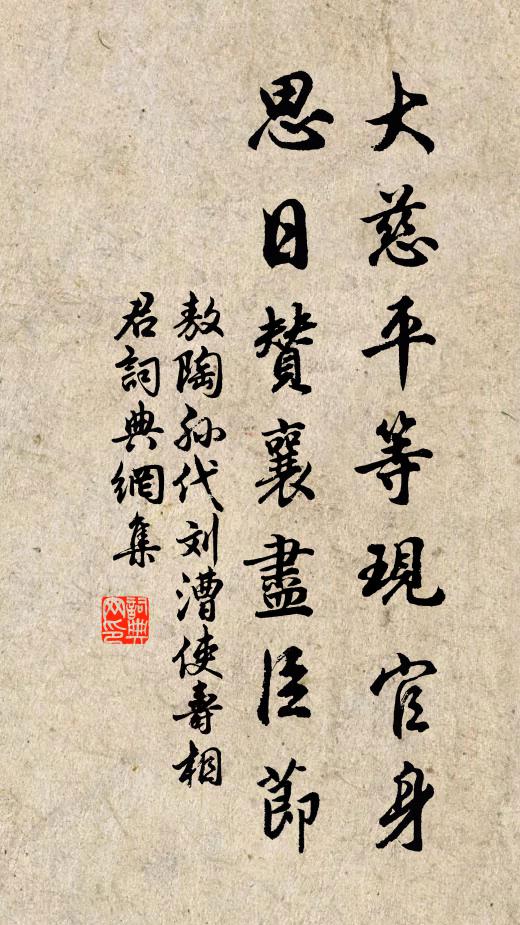 大慈平等現官身
思日贊襄盡臣節
敖陶孫代刘漕使壽相
君詞典網集
詞典
网印